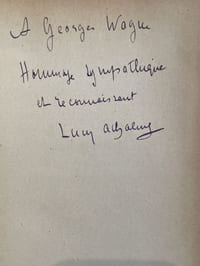 A Georges Wague
Hommage sympathique
et reconnaissant
Lucy